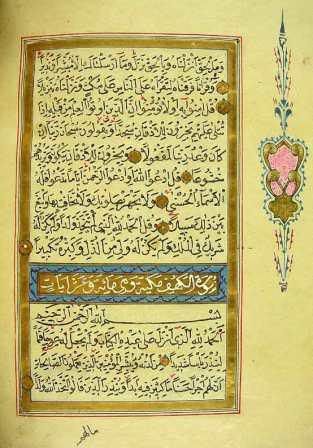 وَبِالْحَقِّ أَنْزَلْنَاهُ وَبِالْحَقِّ نَزَلَ وَمَا أَرْسَلْنَاكَ إِلَّا مُبَشِّرًا وَنَذِيرًا
وَقُرْآنًا فَرَقْنَاهُ لِتَقْرَأَهُ عَلَى النَّاسِ عَلَى مُكْثٍ وَنَزَّلْنَاهُ تَنْزِيلًا
قُلْ آمِنُوا بِهِ أَوْ لَا تُؤْمِنُوا إِنَّ الَّذِينَ أُوتُوا الْعِلْمَ مِنْ قَبْلِهِ إِذَا
يُتْلَى عَلَيْهِمْ يَخِرُّونَ لِلْأَذْقَانِ سُجَّدًا وَيَقُولُونَ سُبْحَانَ رَبِّنَا إِنْ
كَانَ وَعْدُ رَبِّنَا لَمَفْعُولًا وَيَخِرُّونَ لِلْأَذْقَانِ يَبْكُونَ وَيَزِيدُهُمْ
خُشُوعًا قُلِ ادْعُوا اللَّهَ أَوِ ادْعُوا الرَّحْمَنَ أَيًّا مَا تَدْعُوا فَلَهُ
الْأَسْمَاءُ الْحُسْنَى وَلَا تَجْهَرْ بِصَلَاتِكَ وَلَا تُخَافِتْ بِهَا وَابْتَغِ
بَيْنَ ذَلِكَ سَبِيلًا وَقُلِ الْحَمْدُ لِلَّهِ الَّذِي لَمْ يَتَّخِذْ وَلَدًا وَلَمْ يَكُنْ لَهُ
شَرِيكٌ فِي الْمُلْكِ وَلَمْ يَكُنْ لَهُ وَلِيٌّ مِنَ الذُّلِّ وَكَبِّرْهُ تَكْبِيرًا
سورة الكهف مكية وهي مائة وعشر ايات
بِسْمِ اللَّهِ الرَّحْمَنِ الرَّحِيمِ
الْحَمْدُ لِلَّهِ الَّذِي أَنْزَلَ عَلَى عَبْدِهِ الْكِتَابَ وَلَمْ يَجْعَلْ لَهُ عِوَجًا قَيِّمًا
لِيُنْذِرَ بَأْسًا شَدِيدًا مِنْ لَدُنْهُ وَيُبَشِّرَ الْمُؤْمِنِينَ الَّذِينَ يَعْمَلُونَ الصَّالِحَاتِ
أَنَّ لَهُمْ أَجْرًا حَسَنًا مَاكِثِينَ فِيهِ أَبَدًا وَيُنْذِرَ الَّذِينَ قَالُوا اتَّخَذَ اللَّهُ وَلَدًا
مالهم